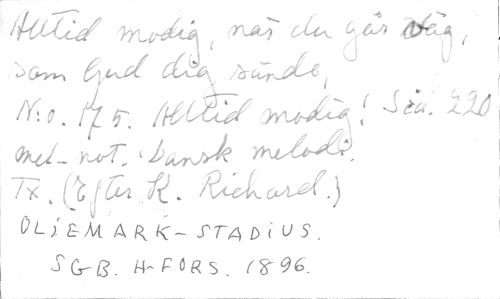 Alltid modig, när du går väg,
som Gud dig sände,
N:o. 175. Alltid modig! Sid. 220
mel-not. Dansk melodi.
Tx. (Efter K. Richard.)
OLIEMARK-STADIUS.
SGB. H-FORS. 1896.